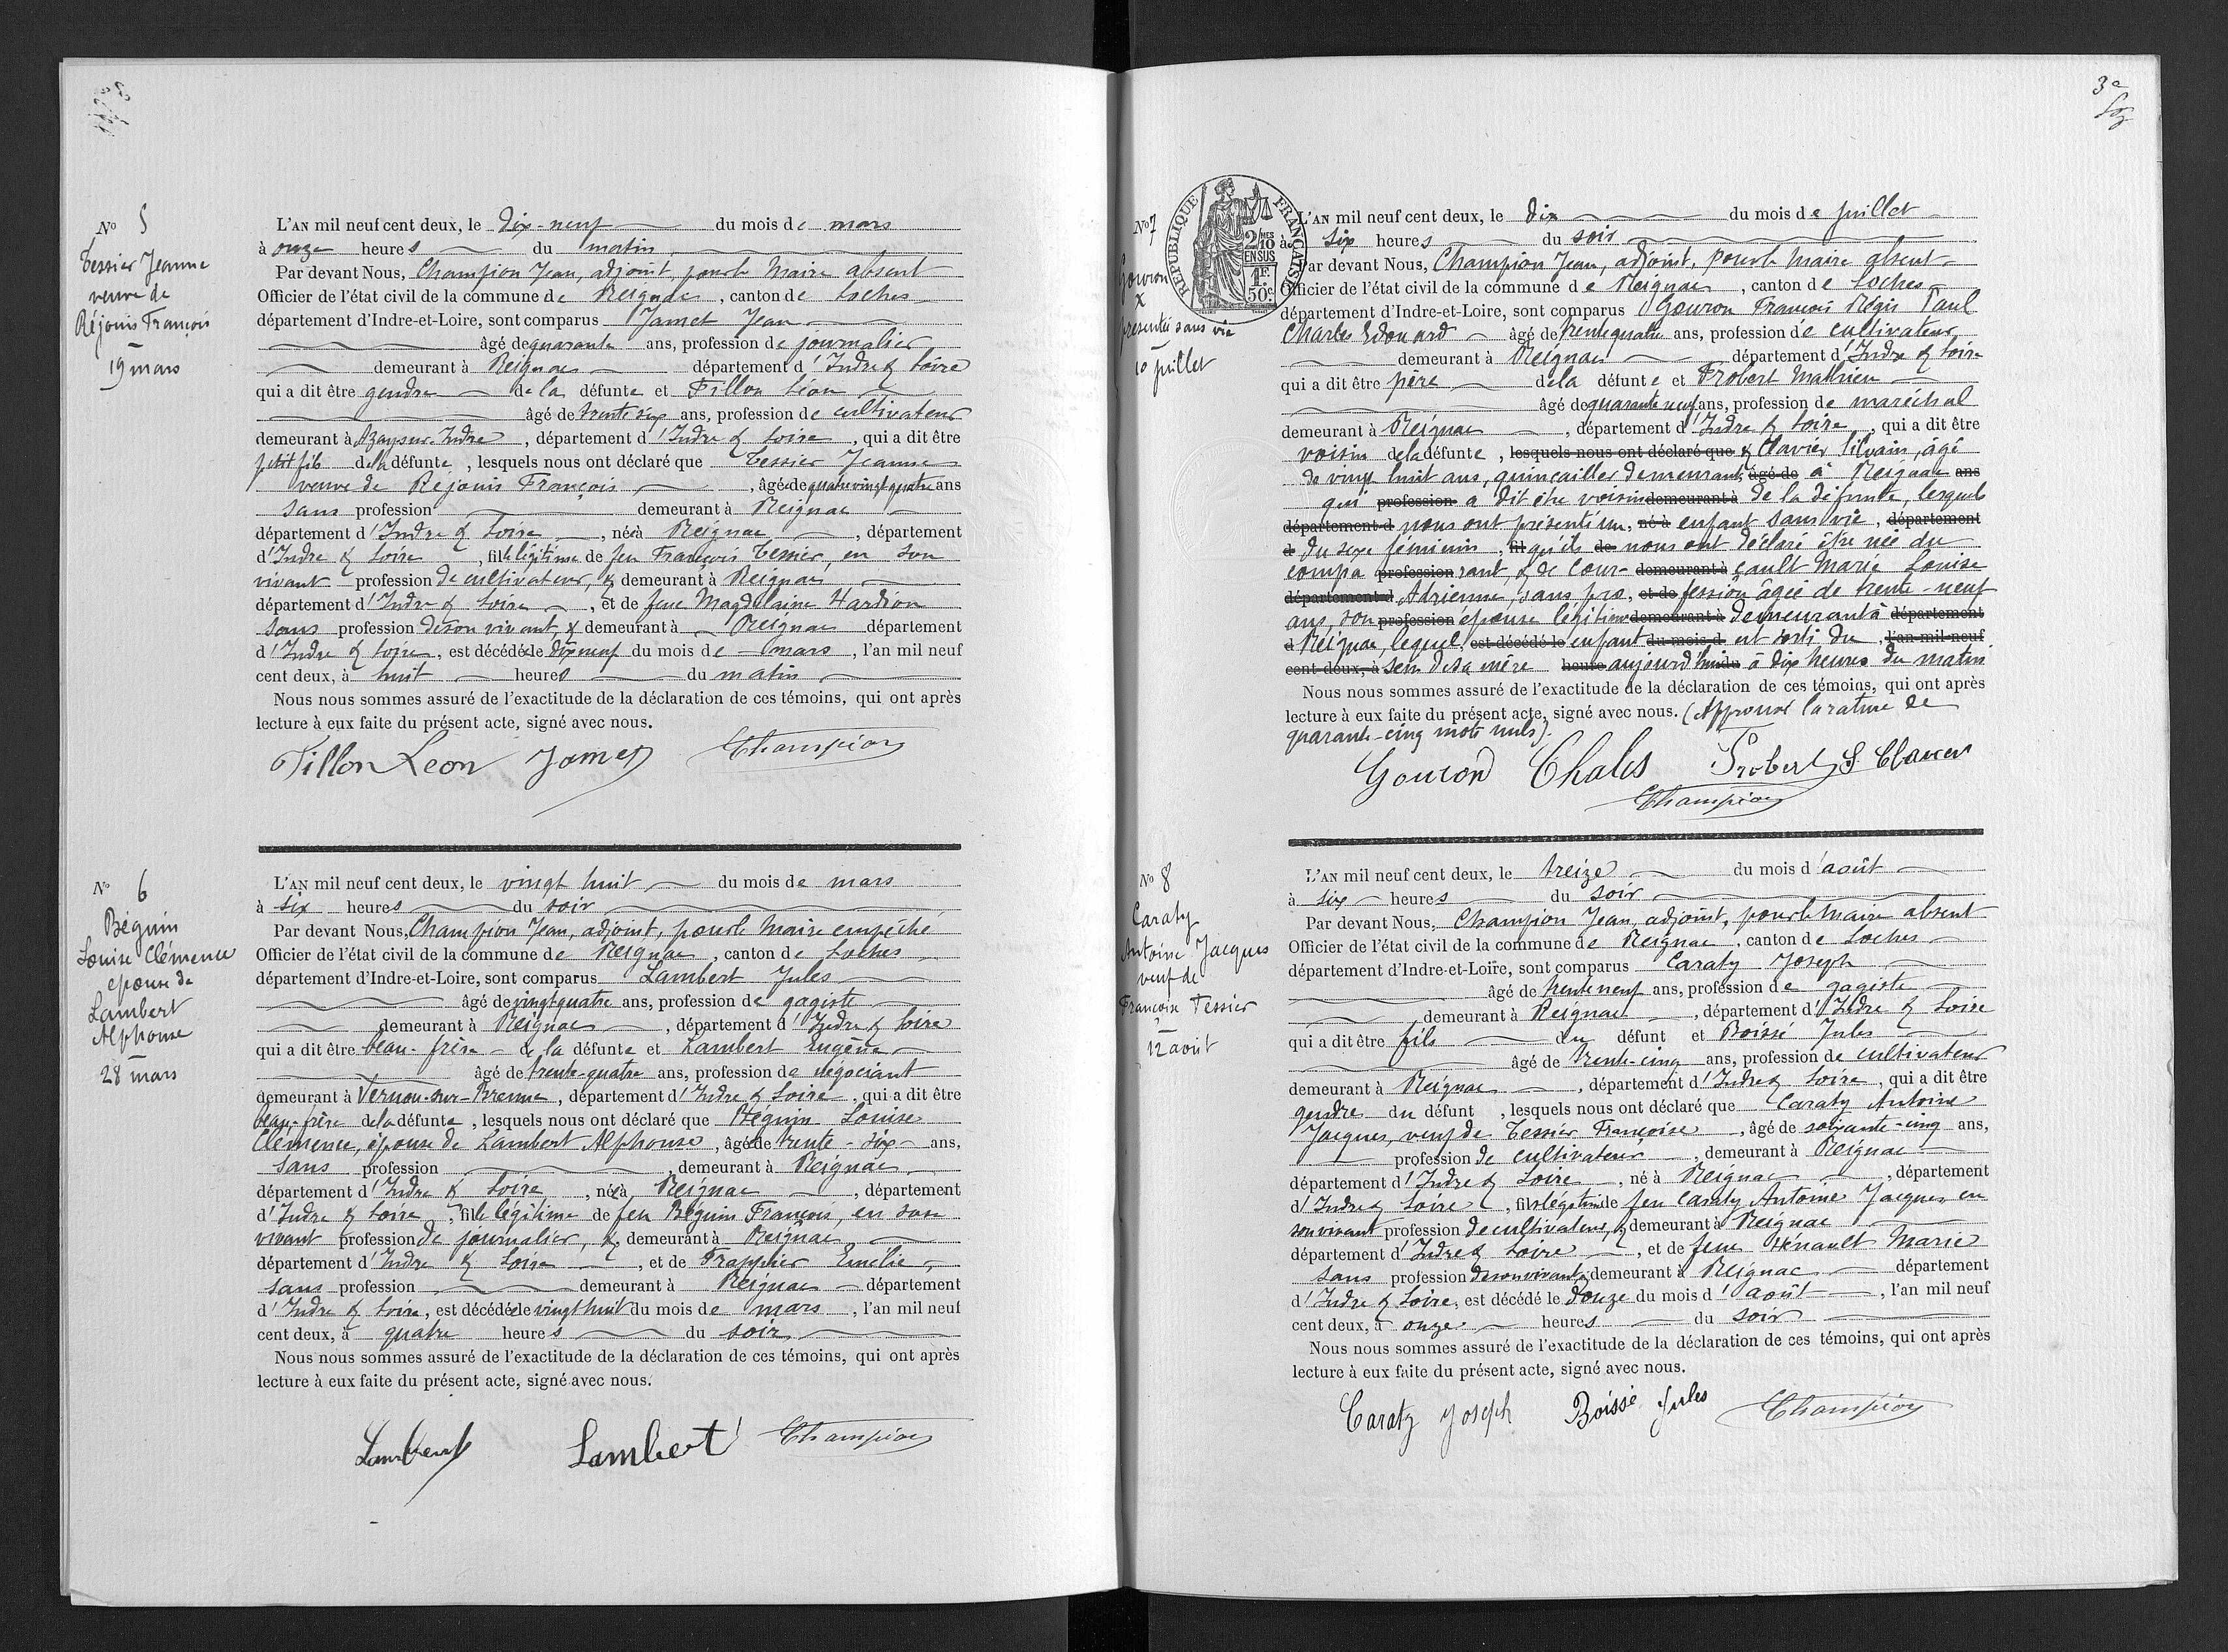 No 5
Tessier Jeanne
veuve de
Réjouis François
19 mars
L'AN mil neuf cent deux, le dix-neuf du mois de mars
à onze heures du matin
Par devant Nous, Champion Jean, adjoint, pour le Maire absent
Officier de l'état civil de la commune de Reignac, canton de Loches
département d'Indre-et-Loire, sont comparus Jamet Jean
âgé de quarante ans, profession de journalier
demeurant à Reignac département d'Indre & Loire
qui a dit être gendre de la défunte et Fillon Léon
âgé de trente six ans, profession de cultivateur
demeurant à Azay-sur-Indre, département d'Indre & Loire, qui a dit être
petit fils de la défunte, lesquels nous ont déclaré que Tessier Jeanne
veuve de Réjouis François, âgée de quatre vingt quatre ans
sans profession demeurant à Reignac
département d'Indre & Loire, née à Reignac, département
d'Indre & Loire, fille légitime de feu François Tessier, en son
vivant profession de cultivateur, & demeurant à Reignac
département d'Indre & Loire, et de feue Magdelaine Hardion
sans profession de son vivant, & demeurant à Reignac département
d'Indre & Loire, est décédée le dix neuf du mois de mars, l'an mil neuf
cent deux, à huit heures du matin
Nous nous sommes assuré de l'exactitude de la déclaration de ces témoins, qui ont après
lecture à eux faite du présent acte, signé avec nous.
Fillon Leon Jamet Champion
No 6
Béguin
Louise Clémence
épouse de
Lambert
Alphonse
28 mars
L'AN mil neuf cent deux, le vingt huit du mois de mars
à six heures du soir
Par devant Nous, Champion Jean, adjoint, pour le Maire empêché
Officier de l'état civil de la commune de Reignac, canton de Loches
département d'Indre-et-Loire, sont comparus Lambert Jules
âgé de vingt quatre ans, profession de gagiste
demeurant à Reignac, département d'Indre & Loire
qui a dit être beau-frère de la défunte et Lambert Eugène
âgé de trente-quatre ans, profession de négociant
demeurant à Vernou-sur-Brenne, département d'Indre & Loire, qui a dit être
beau-frère de la défunte, lesquels nous ont déclaré que Béguin Louise
Clémence, épouse de Lambert Alphonse, âgée de trente-six ans,
sans profession, demeurant à Reignac
département d'Indre & Loire, née à Reignac, département
d'Indre & Loire, fille légitime de feu Béguin François, en son
vivant profession de journalier, & demeurant à Reignac
département d'Indre & Loire, et de Frappier Emélie,
sans profession demeurant à Reignac département
d'Indre & Loire, est décédée le vingt huit du mois de mars, l'an mil neuf
cent deux, à quatre heures du soir
Nous nous sommes assuré de l'exactitude de la déclaration de ces témoins, qui ont après
lecture à eux faite du présent acte, signé avec nous.
Lambert Lambert Champion
3e
No 7
Gouron
X
présentée sans vie
10 juillet
RÉPUBLIQUE FRANÇAISE
2/10 EN SUS
1F. 50c.
L'AN mil neuf cent deux, le dix du mois de juillet
à six heures du soir
Par devant Nous, Champion Jean, adjoint, pour le Maire absent
Officier de l'état civil de la commune de Reignac, canton de Loches
département d'Indre-et-Loire, sont comparus Gouron François Régis Paul
Charles Edouard âgé de trente quatre ans, profession de cultivateur
demeurant à Reignac département d'Indre & Loire
qui a dit être père de la défunte et Probert Mathieu
âgé de quarante neuf ans, profession de maréchal
demeurant à Reignac, département d'Indre & Loire, qui a dit être
voisin de la défunte, lesquels nous ont déclaré que & Clavier Silvain, âgé
de vingt huit ans, quincailler demeurant âgé de à Reignac ans
qui profession a dit être voisin demeurant à de la défunte, lesquels
département d nous ont présenté un, né à enfant sans vie, département
d du sexe féminin, fil qu'ils de nous ont déclaré être née du
compa profession rant, & de Cour- demeurant à çault Marie Louise
département d Adrienne, sans pro. et de fession âgée de trente-neuf
ans, son profession épouse légitime demeurant à demeurant à département
d Reignac, lequel est décédé le enfant du mois d est sorti du l'an mil neuf
cent deux, à sein de sa mère heure aujourd'hui du à dix heures du matin
Nous nous sommes assuré de l'exactitude de la déclaration de ces témoins, qui ont après
lecture à eux faite du présent acte, signé avec nous. (Approuvé la rature de
quarante-cinq mots nuls).
Gouron Chales Probert S. Clavier
Champion
No 8
Caraty
Antoine Jacques
veuf de
Françoise Tessier
12 août
L'AN mil neuf cent deux, le treize du mois d'août
à six heures du soir
Par devant Nous, Champion Jean, adjoint, pour le Maire absent
Officier de l'état civil de la commune de Reignac, canton de Loches
département d'Indre-et-Loire, sont comparus Caraty Joseph
âgé de trente neuf ans, profession de gagiste
demeurant à Reignac, département d'Indre & Loire
qui a dit être fils du défunt et Boissé Jules
âgé de trente-cinq ans, profession de cultivateur
demeurant à Reignac, département d'Indre & Loire, qui a dit être
gendre du défunt, lesquels nous ont déclaré que Caraty Antoine
Jacques, veuf de Tessier Françoise, âgé de soixante-cinq ans,
profession de cultivateur, demeurant à Reignac
département d'Indre & Loire, né à Reignac, département
d'Indre & Loire, fils légitime de feu Caraty Antoine Jacques, en
son vivant profession de cultivateur, & demeurant à Reignac
département d'Indre & Loire, et de feue Hénault Marie
sans profession de son vivant & demeurant à Reignac département
d'Indre & Loire, est décédé le douze du mois d'août, l'an mil neuf
cent deux, à onze heures du soir
Nous nous sommes assuré de l'exactitude de la déclaration de ces témoins, qui ont après
lecture à eux faite du présent acte, signé avec nous.
Caraty Joseph Boissé Jules Champion